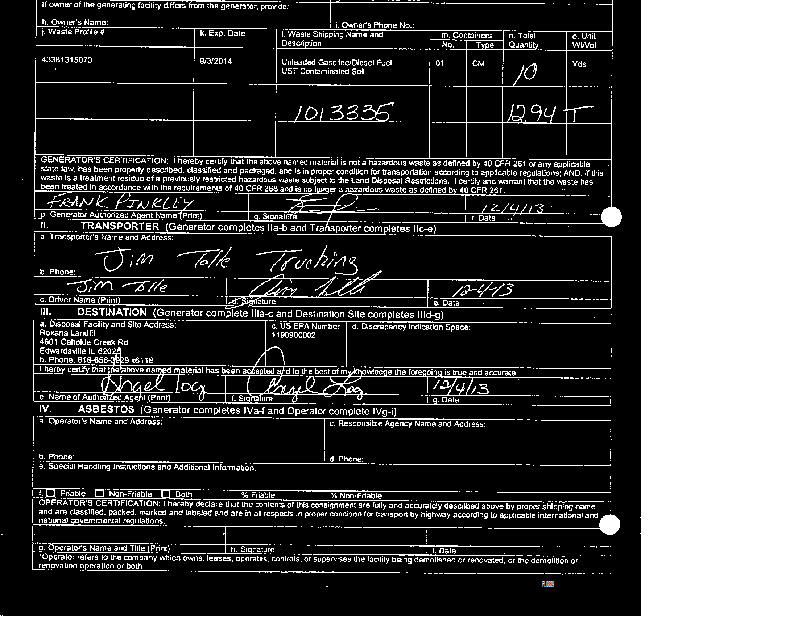 If owner of the generating facility differs from the generator, provide:
h. Owner's Name: i. Owner's Phone No.:
j. Waste Profile # k. Exp. Date l. Waste Shipping Name and Description m. Containers No. Type n. Total Quantity o. Unit Wt/Vol
43381315070 9/3/2014 Unleaded Gasoline/Diesel Fuel UST Contaminated Soil 01 CM 10 Yds
1013335 1294 T
GENERATOR'S CERTIFICATION: I hereby certify that the above named material is not a hazardous waste as defined by 40 CFR 261 or any applicable
state law, has been properly described, classified and packaged, and is in proper condition for transportation according to applicable regulations; AND, if this
waste is a treatment residue of a previously restricted hazardous waste subject to the Land Disposal Restrictions. I certify and warrant that the waste has
been treated in accordance with the requirements of 40 CFR 268 and is no longer a hazardous waste as defined by 40 CFR 261.
FRANK PINKLEY 12/4/13
p. Generator Authorized Agent Name (Print) q. Signature r. Date
II. TRANSPORTER (Generator completes IIa-b and Transporter completes IIc-e)
a. Transporter's Name and Address:
Jim Tolle Trucking
b. Phone:
Jim Tolle Jim Tolle 12-4-13
c. Driver Name (Print) d. Signature e. Date
III. DESTINATION (Generator complete IIIa-c and Destination Site completes IIId-g)
a. Disposal Facility and Site Address: c. US EPA Number d. Discrepancy Indication Space:
Roxana Landfill
4601 Cahokia Creek Rd
Edwardsville IL 62025
b. Phone:
I hereby certify that the above named material has been accepted and to the best of my knowledge the foregoing is true and accurate
12/4/13
e. Name of Authorized Agent (Print) f. Signature g. Date
IV. ASBESTOS (Generator completes IVa-f and Operator complete IVg-i)
a. Operator's Name and Address: c. Responsible Agency Name and Address:
b. Phone: d. Phone:
e. Special Handling Instructions and Additional Information:
f. Friable Non-Friable Both % Friable % Non-Friable
OPERATOR'S CERTIFICATION: I hereby declare that the contents of this consignment are fully and accurately described above by proper shipping name
and are classified, packed, marked and labeled and are in all respects in proper condition for transport by highway according to applicable international and
national governmental regulations.
g. Operator's Name and Title (Print) h. Signature i. Date
*Operator refers to the company which owns, leases, operates, controls, or supervises the facility being demolished or renovated, or the demolition or
renovation operation or both